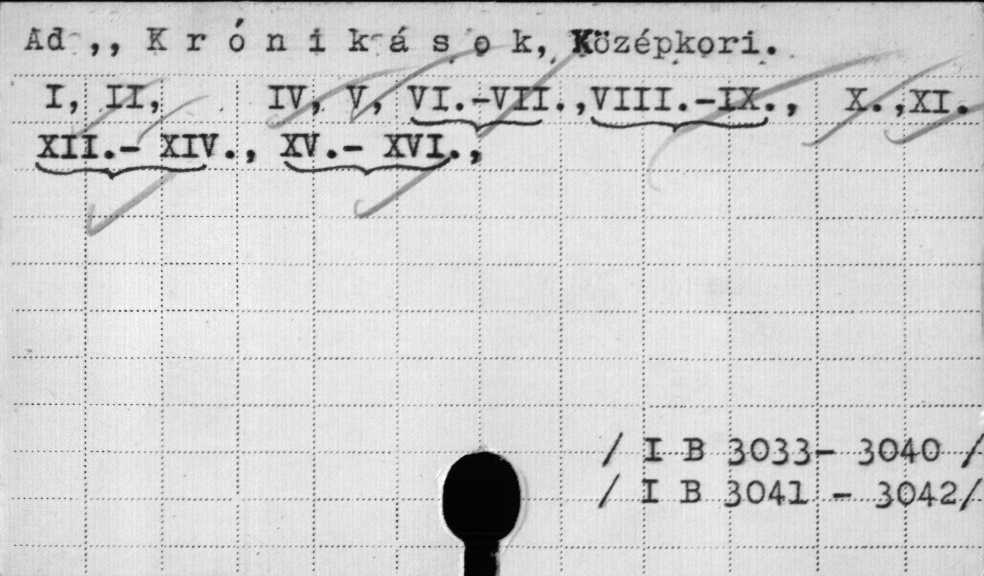 Ad ,, K r ó n i k á s o k, Középkori.
I, II, IV, V, VI.-VII.,VIII.-IX., X.,XI.
XII.- XIV., XV.- XVI.,
/ I B 3033- 3040 /
/ I B 3041 - 3042/